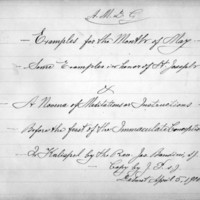 A. M. D. G.
Examples for the Month of May
Some Examples in honor of St. Joseph
&
A Novena of Meditations or Instructions
Before the feast of the Immaculate Conception
In Kalispel by the Rev. Jos Bandini, S.J.
Copy by J.
April 5, 19